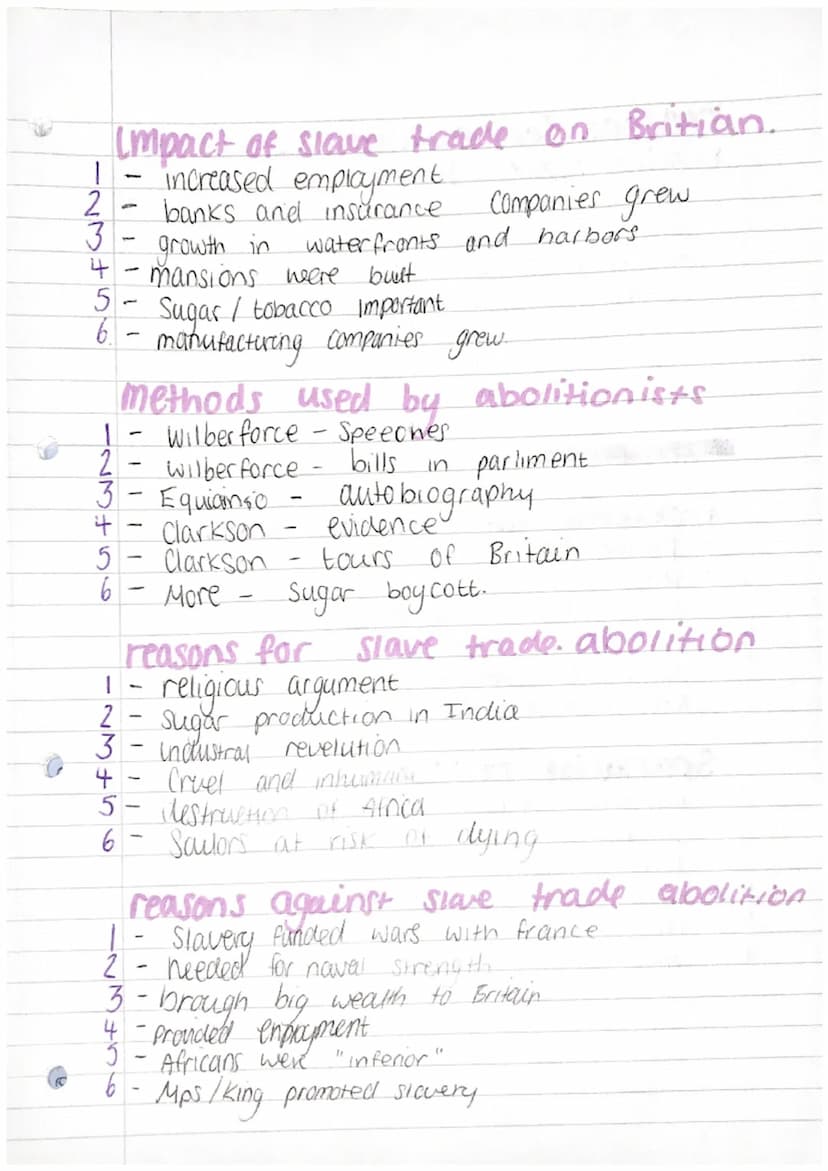 Impact of slave trade on Britian.
1 - increased employment
2 - banks and insurance companies grew
3 - growth in waterfronts and harbors
4 - mansions were built
5 - Sugar / tobacco important
6. - manufacturing companies grew.
methods used by abolitionists
1 - Wilberforce - Speeches
2 - wilberforce - bills in parliment
3 - Equianio - autobiography
4 - Clarkson - evidence
5 - Clarkson - tours of Britain
6 - More - Sugar boycott.
reasons for slave trade. abolition
1 - religious argument
2 - sugar production in India
3 - industral revelution
4 - Cruel and inhumane
5 - destruction of Africa
6 - Sailors at risk of dying
reasons against slave trade abolition
1 - Slavery funded wars with france
2 - needed for naval strength
3 - brough big wealth to Britain
4 - provided enployment
5 - Africans were "inferior"
6 - Mps / King promoted slavery